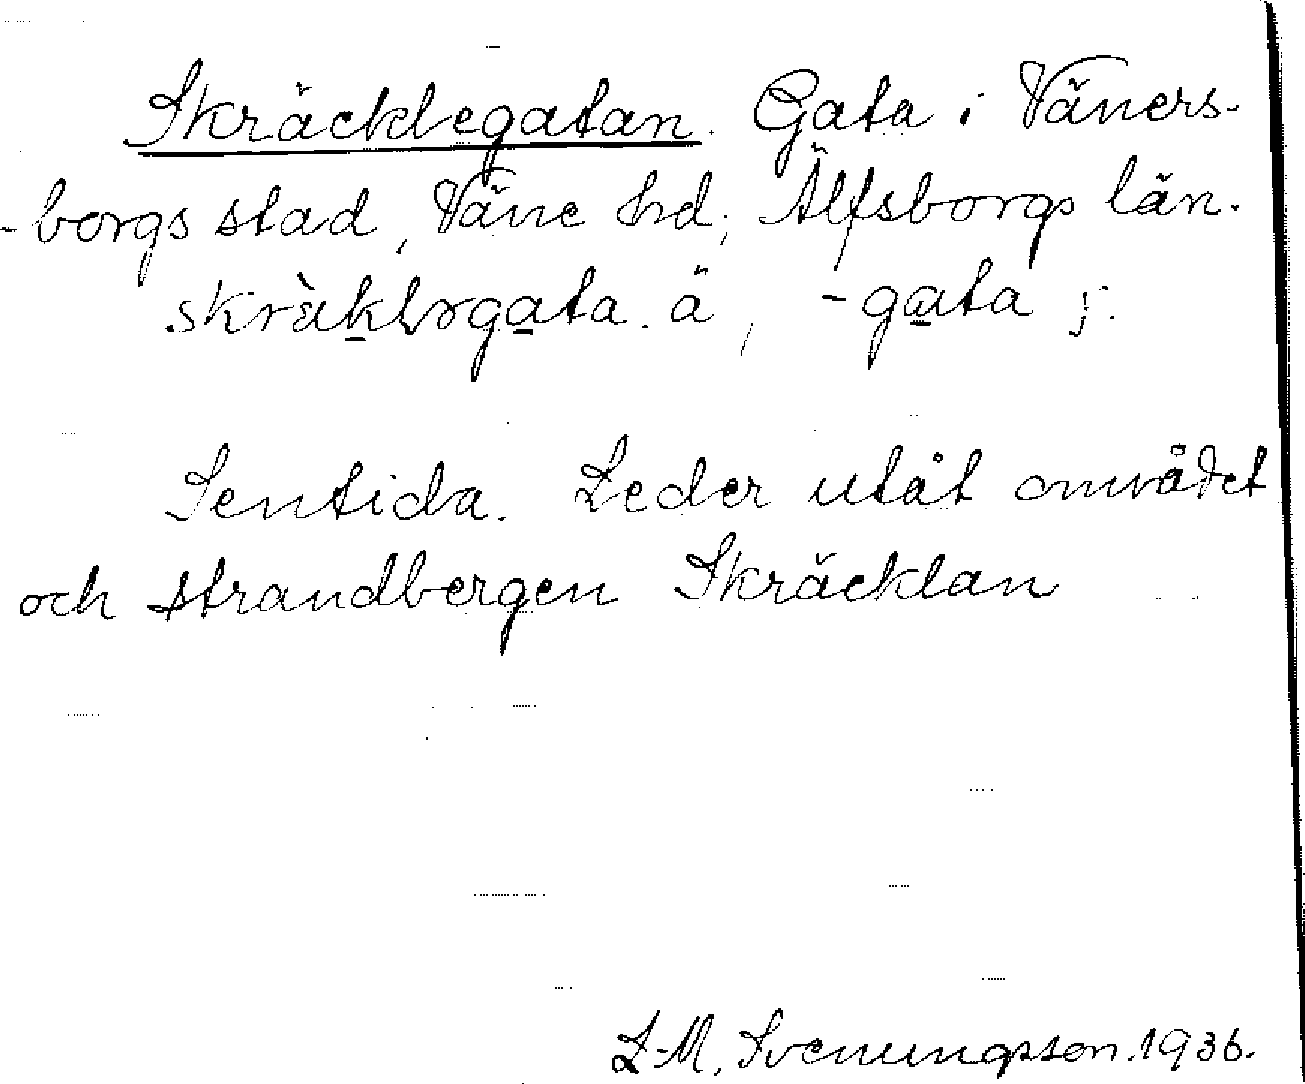 Skräcklegatan. Gata i Väners-
-borgs stad, Väne hd, Älfsborgs län.
skràklegata. ä, -gata j.
Sentida. Leder utåt området
och strandbergen Skräcklan
L-M. Svenungsson. 1936.